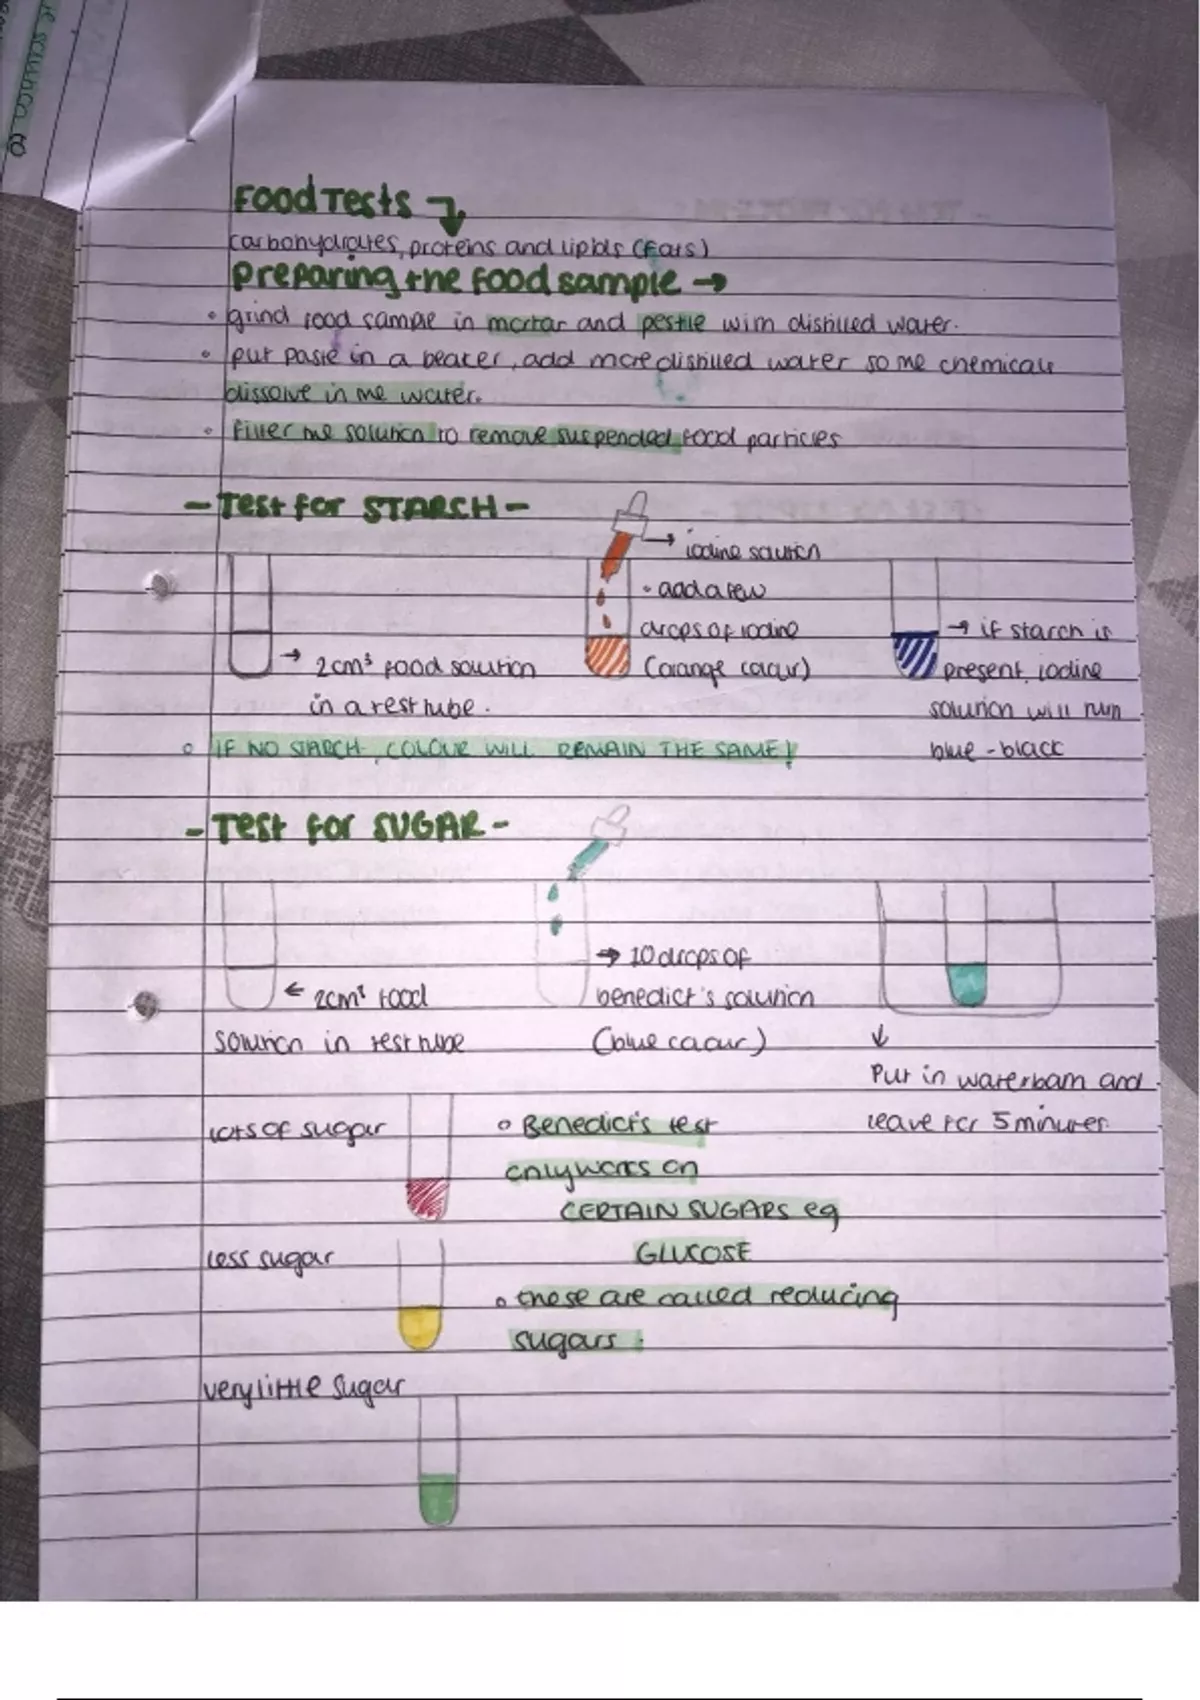 Food Tests
carbohydrates, proteins and lipids (fats)
preparing the food sample →
• grind food sample in mortar and pestle with distilled water.
• put paste in a beaker, add more distilled water so the chemicals
dissolve in the water.
• filter the solution to remove suspended food particles
- Test for STARCH -
→ iodine solution
• add a few
drops of iodine
(orange colour)
→ 2cm³ food solution
in a test tube.
→ if starch is
present, iodine
solution will turn
blue-black
• IF NO STARCH, COLOUR WILL REMAIN THE SAME!
- Test for SUGAR -
← 2cm³ food
solution in test tube
→ 10 drops of
benedict's solution
(blue colour)
↓
Put in waterbath and
leave for 5 minutes.
lots of sugar
less sugar
very little sugar
• Benedict's test
only works on
CERTAIN SUGARS eg
GLUCOSE
• these are called reducing
sugars.